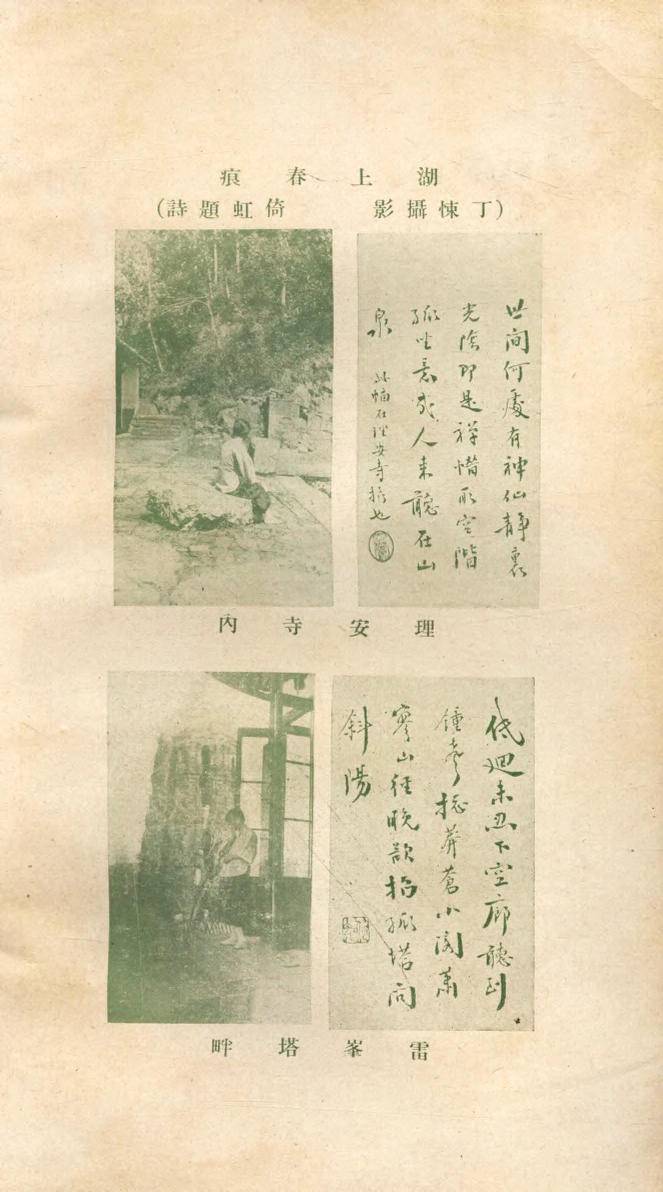 湖上春痕
(丁悚攝影　倚虹題詩)
世間何處有神仙靜裏
光陰即是禪惜取空階
孤坐意幾人來聽在山
泉
此幅在理安寺攝也
理安寺內
低迴未忍下空廊聽到
鐘聲揔莽蒼小閣蕭
寥山徑晚欲招孤塔問
斜陽
雷峯塔畔